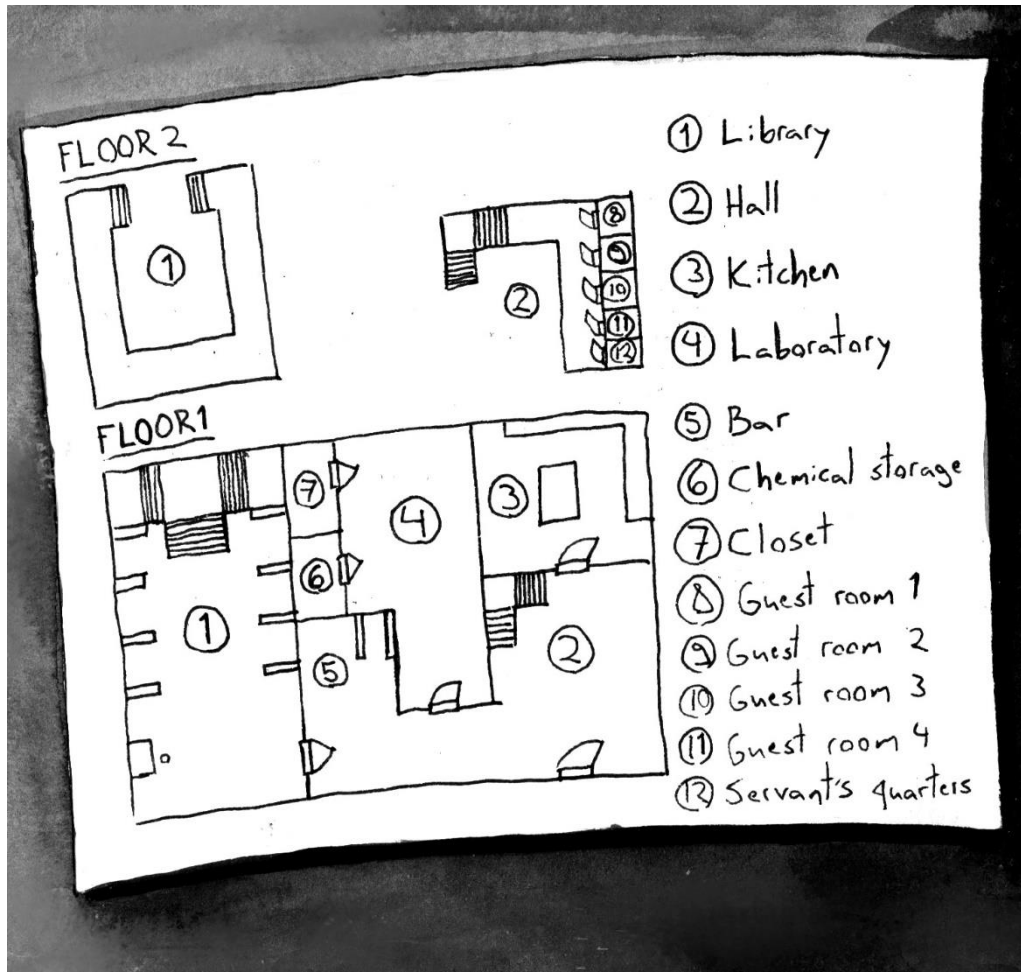 FLOOR 2
1
2
8
9
10
11
12
1 Library
2 Hall
3 Kitchen
4 Laboratory
5 Bar
6 Chemical storage
7 Closet
8 Guest room 1
9 Guest room 2
10 Guest room 3
11 Guest room 4
12 Servant's quarters
FLOOR 1
7
4
3
6
1
5
2